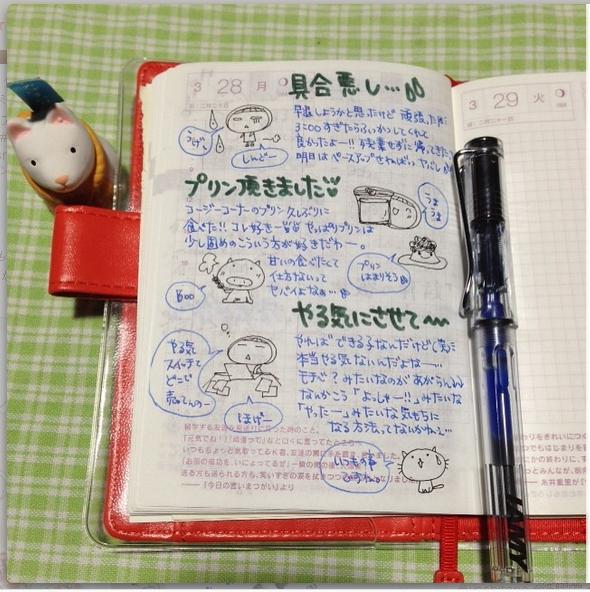 3 28 月
具合悪し…
早退しようかと思ったけど 頑張った!!
3:00すぎたら
良かったよー!! 残業せずに帰ってきた
明日は ペースアップせねばっ ヤバし
うげ、
しんどー
プリン頂きました
コージーコーナーのプリン久しぶりに
食べた!! コレ好きー やっぱりプリンは
少し固めのこういう方が好きだわー。
うま
うま
甘いの食べたくて
仕方ないって
ヤバイよなぁ…
プリン
はまりそう
Boo
やる気にさせて〜
やればできる子なんだけどじ
本当やる気ないんだよねー…
モチベ?みたいなのがあがらん
なんかこう「よっしゃー!!」みたいな
「やったー」みたいな気もちに
なる方法ってないかねぇ…
やる気
スイッチて
どこで
売ってんのー
ほげー
いつもの事
ですね。
留学する友達を見送りに行った時のこと。
「元気でね!」「頑張って」などロ々に言ってたところ
いつもちょっと気取ってるK君、友達の肩に手を置き
「お国の成功を、いによってるぜ」
送る方も送られる方も、笑いすぎの涙を拭きつつ
──『今日の言いまつがい』より
3 29 火
LAMY